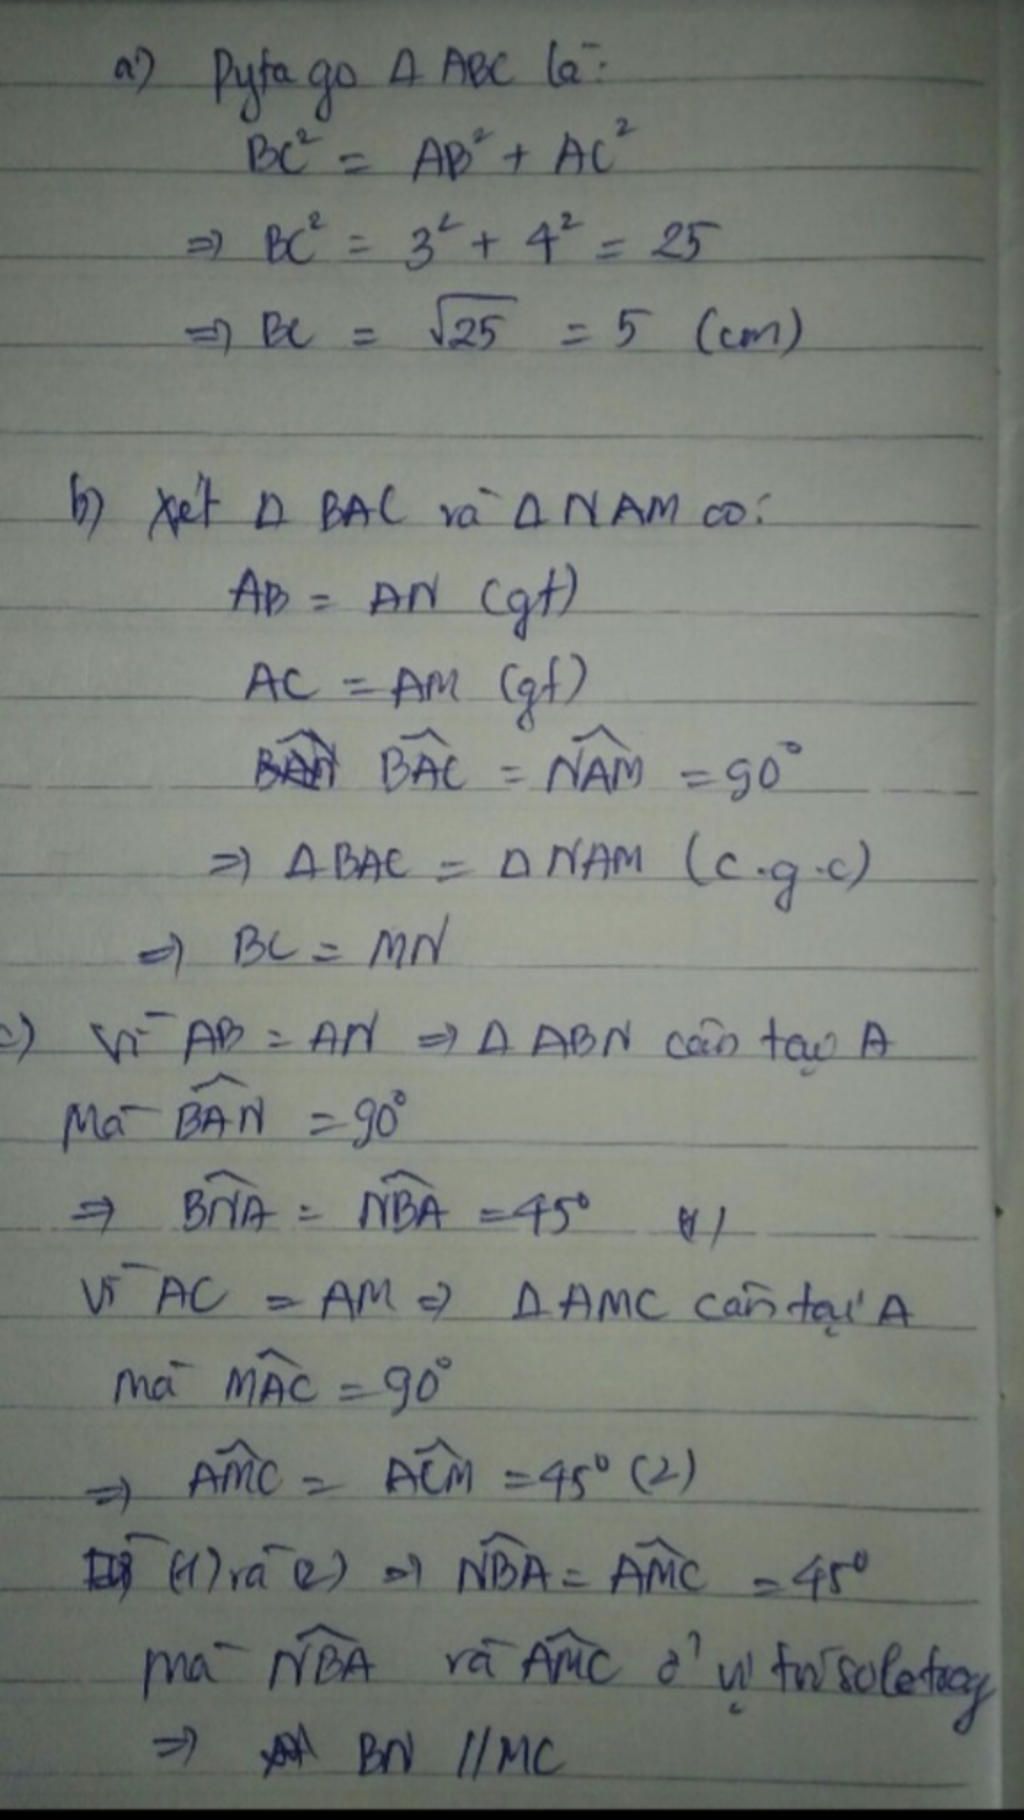 a) Pytago Δ ABC là:
BC² = AB² + AC²
⇒ BC² = 3² + 4² = 25
⇒ BC = √25 = 5 (cm)
b) Xét Δ BAC và Δ NAM có:
AB = AN (gt)
AC = AM (gt)
\widehat{BAC} = \widehat{NAM} = 90°
⇒ Δ BAC = Δ NAM (c.g.c)
⇒ BC = MN
c) Vì AB = AN ⇒ Δ ABN cân tại A
Mà \widehat{BAN} = 90°
⇒ \widehat{BNA} = \widehat{NBA} = 45° (1)
Vì AC = AM ⇒ Δ AMC cân tại A
mà \widehat{MAC} = 90°
⇒ \widehat{AMC} = \widehat{ACM} = 45° (2)
Từ (1) và (2) ⇒ \widehat{NBA} = \widehat{AMC} = 45°
mà \widehat{NBA} và \widehat{AMC} ở vị trí so le trong
⇒ BN // MC